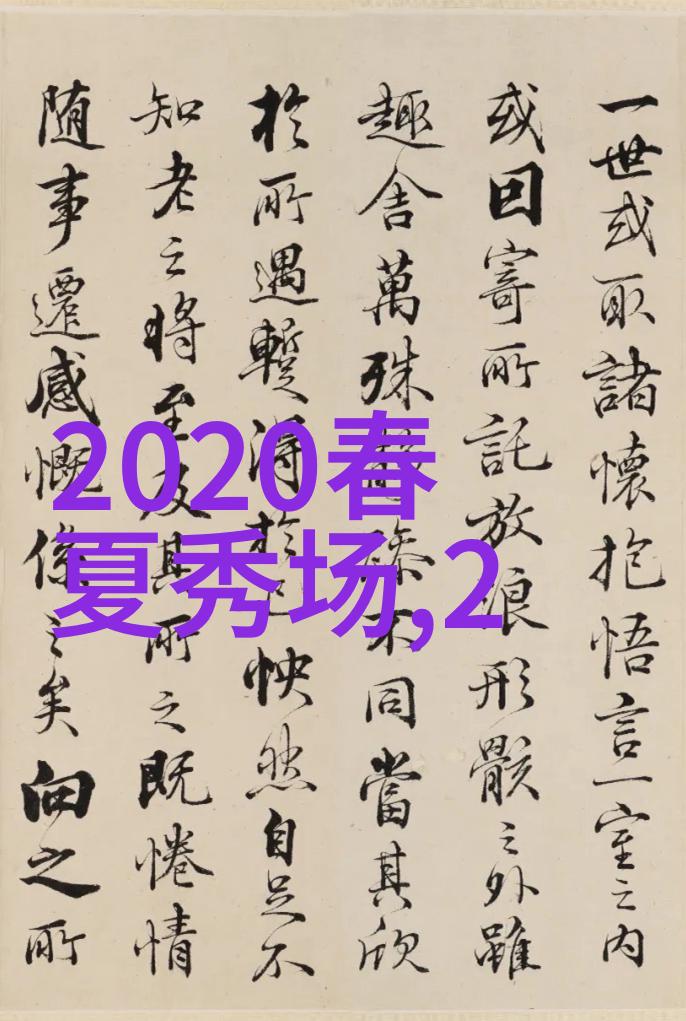 一世或取諸懷抱悟言一室之内
或因寄所託放浪形骸之外雖
趣舍萬殊静躁不同當其欣
於所遇蹔得於己怏然自足不
知老之將至及其所之既惓情
随事遷感慨係之矣向之所
2020春
夏秀场,2